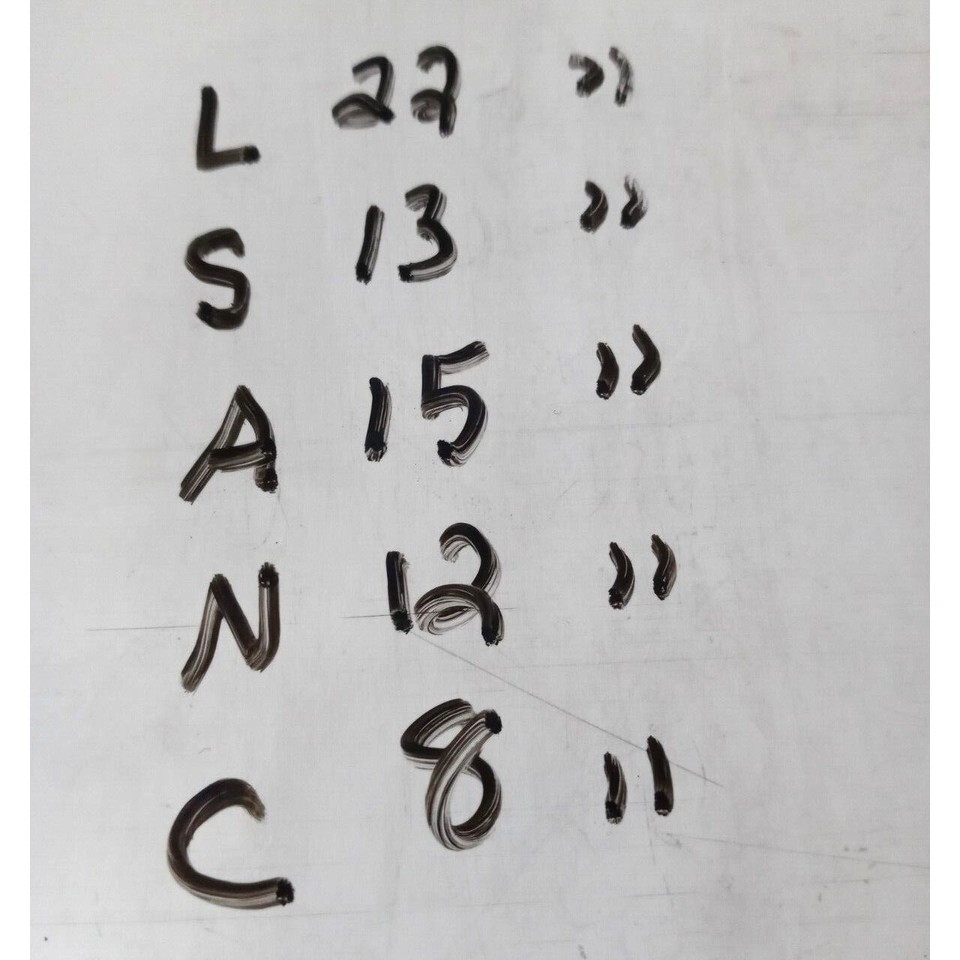 L 22 "
S 13 "
A 15 "
N 12 "
C 8 "